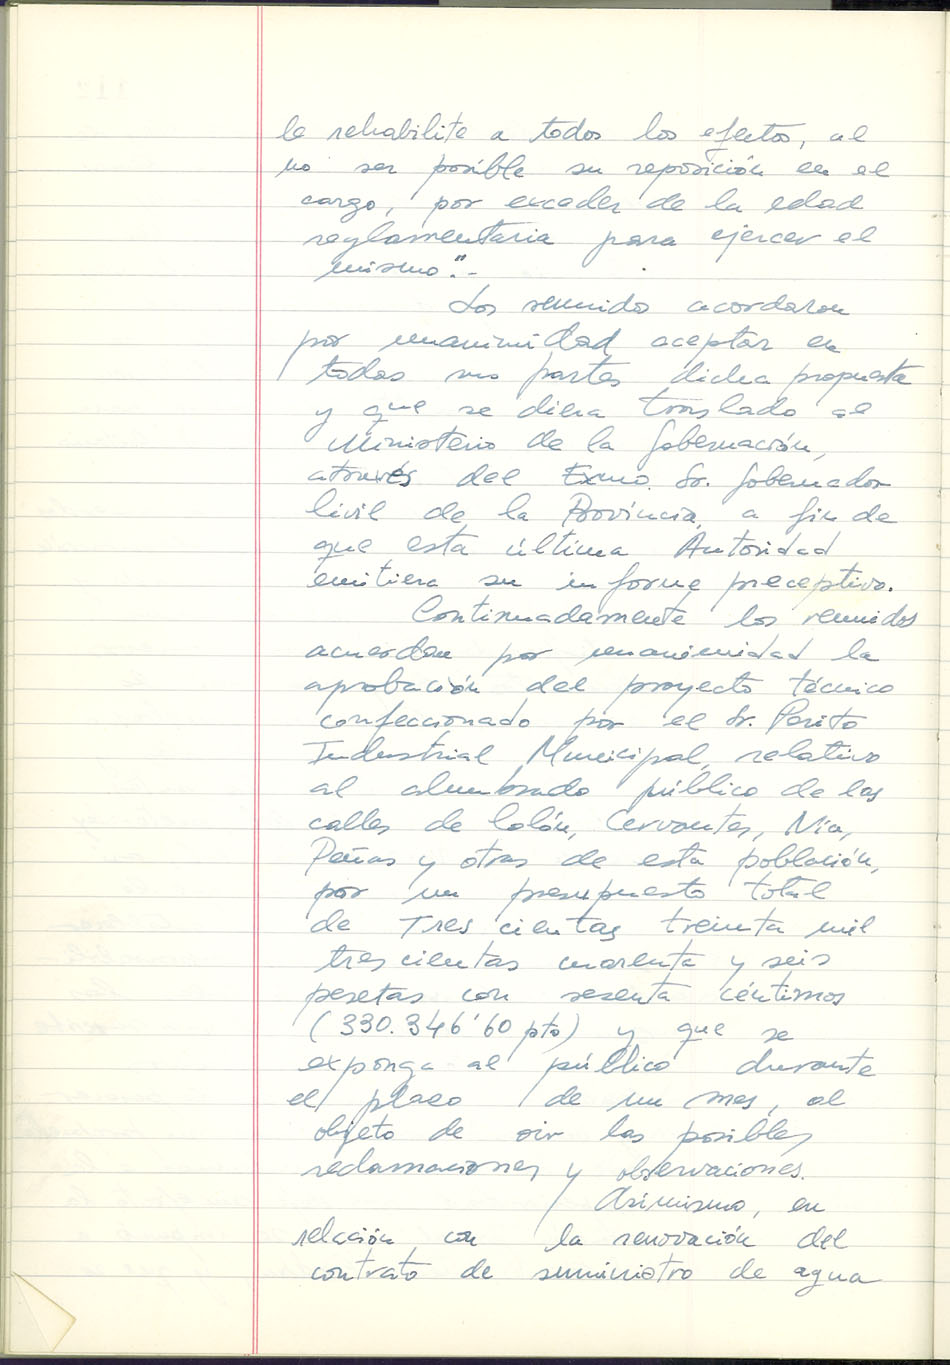 le rehabilite a todos los efectos, al
no ser posible su reposición en el
cargo, por exceder de la edad
reglamentaria para ejercer el
mismo".-
Los reunido acordaron
por unanimidad aceptar en
todas sus partes dicha propuesta
y que se diera traslado al
Ministerio de la Gobernación,
através del Exmo. Sr. Gobernador
Civil de la Provincia, a fin de
que esta última Autoridad
emitiera su informe preceptivo.
Continuadamente los reunidos
acuerdan por unanimidad la
aprobación del proyecto técnico
confeccionado por el Sr. Perito
Industrial Municipal, relativo
al alumbrado público de las
calles de Colón, Cervantes, Nía,
Peñas y otras de esta población,
por un presupuesto total
de Tres cientas treinta mil
tres cientas cuarenta y seis
pesetas con sesenta céntimos
(330.346'60 pts) y que se
exponga al público durante
el plazo de un mes, al
objeto de oir las posibles
reclamaciones y observaciones.
Asimismo, en
relación con la renovación del
contrato de suministro de agua